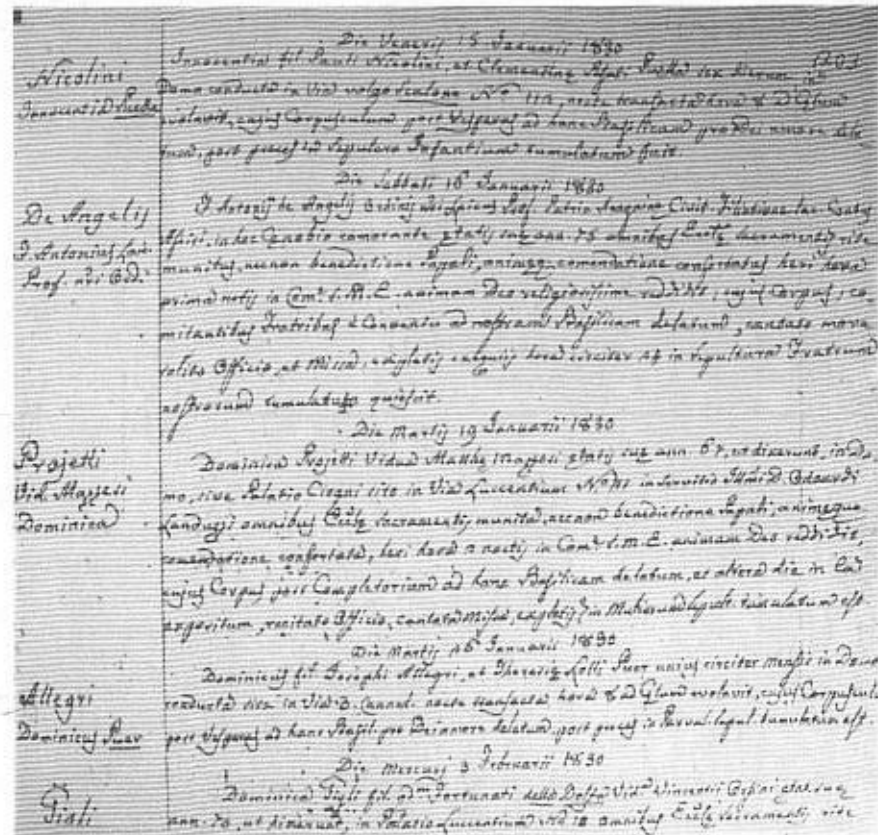 Die Veneris 15 Januarii 1830
1203
Nicolini
Innocentia Puella
Innocentia fil. Pauli Nicolini, et Clementinę Puella sex dierum in
Domo conducta in Via vulgo Scalone Nº 112, nocte transacta hora 8 ad Glum
evolavit, cujus Corpusculum post Vesperas ad hanc Basilicam pro Dei amore dela-
tum, post preces in Sepulcro Infantium tumulatum fuit.
Die Sabbati 16 Januarii 1830
De Angelis
F. Antonius Laic.
Prof. nri Ord.
F. Antonius de Angelis Ordinis nri Laicus Prof. Patria Civit.
in hoc Cęnobio comorante ętatis suę ann. 75 omnibus Eccłę Sacramentis rite
munitus, necnon benedictione Papali, animęq. comendatione confortatus heri hora
prima noctis in Com. S.M.E. animam Deo religiosissime reddidit, cujus Corpus, co-
mitantibus Fratribus e Conventu ad nostram Basilicam delatum, cantato more
solito Officio, et Missa, expletis exequiis hora circiter 14 in sepultura Fratrum
nostrorum tumulatum quiescit.
Die Martis 19 Januarii 1830
Projetti
Vid. Mazzesi
Dominica
Dominica Projetti Vidua Matthę Mazzesi ętatis suę ann. 67, ut dixerunt, in Do-
mo, sive Palatio Cicogni sito in Via Luccentium Nº in servitio Illmi D. Odoardi
Landuzzi omnibus Eccłę Sacramentis munita, necnon benedictione Papali, animęque
comendatione confortata, heri hora 2 noctis in Com. S.M.E. animam Deo reddidit,
cujus Corpus post Completorium ad hanc Basilicam delatum, et altera die in Ea
expositum, recitato Officio, cantata Missa, expletis in Mulierum sepulc. tumulatum est.
Die Martis 26 Januarii 1830
Allegri
Dominicus Puer
Dominicus fil. Josephi Allegri, et Theresię Lolli Puer unius circiter mensis in Domo
conducta sita in Via nocte transacta hora 8 ad Glum evolavit, cujus Corpuscul.
post Vesperas ad hanc Basil. pro Dei amore delatum, post preces in Parvul. sepul. tumulatum est.
Die Mercurii 3 Februarii 1830
Gigli
Dominica Gigli fil. qdm Fortunati Vid. Vincentii Orsini ętat. suę
ann. 70, ut dixerunt, in Palatio Luccentium Nº 18 omnibus Eccłę Sacramentis rite